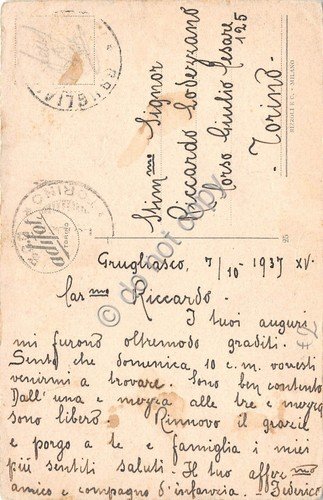 GRUGLIA
Stim.mo Signor
Riccardo Lodezzano
Corso Giulio Cesare
125
- Torino -
RIZZOLI & C. - MILANO
25
do not copy
Grugliasco, 7/10 - 1937 XV.
Car.mo Riccardo.
I tuoi auguri
mi furono oltremodo graditi.
Sento che domenica, 10 c. m. vorresti
venirmi a trovare. Sono ben contento
Dall'una e mezza alle tre e mezza
sono libero. Rinnovo il grazie
e porgo a te e famiglia i miei
più sentiti saluti. Il tuo affez.mo
amico e compagno d'infanzia. Federico